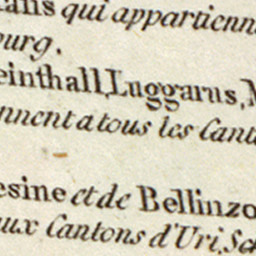 qui appartienn
ourg.
einthall, Luggarus,
nnent a tous les Cant
esine et de Bellinzo
ux Cantons d'Uri, Sc